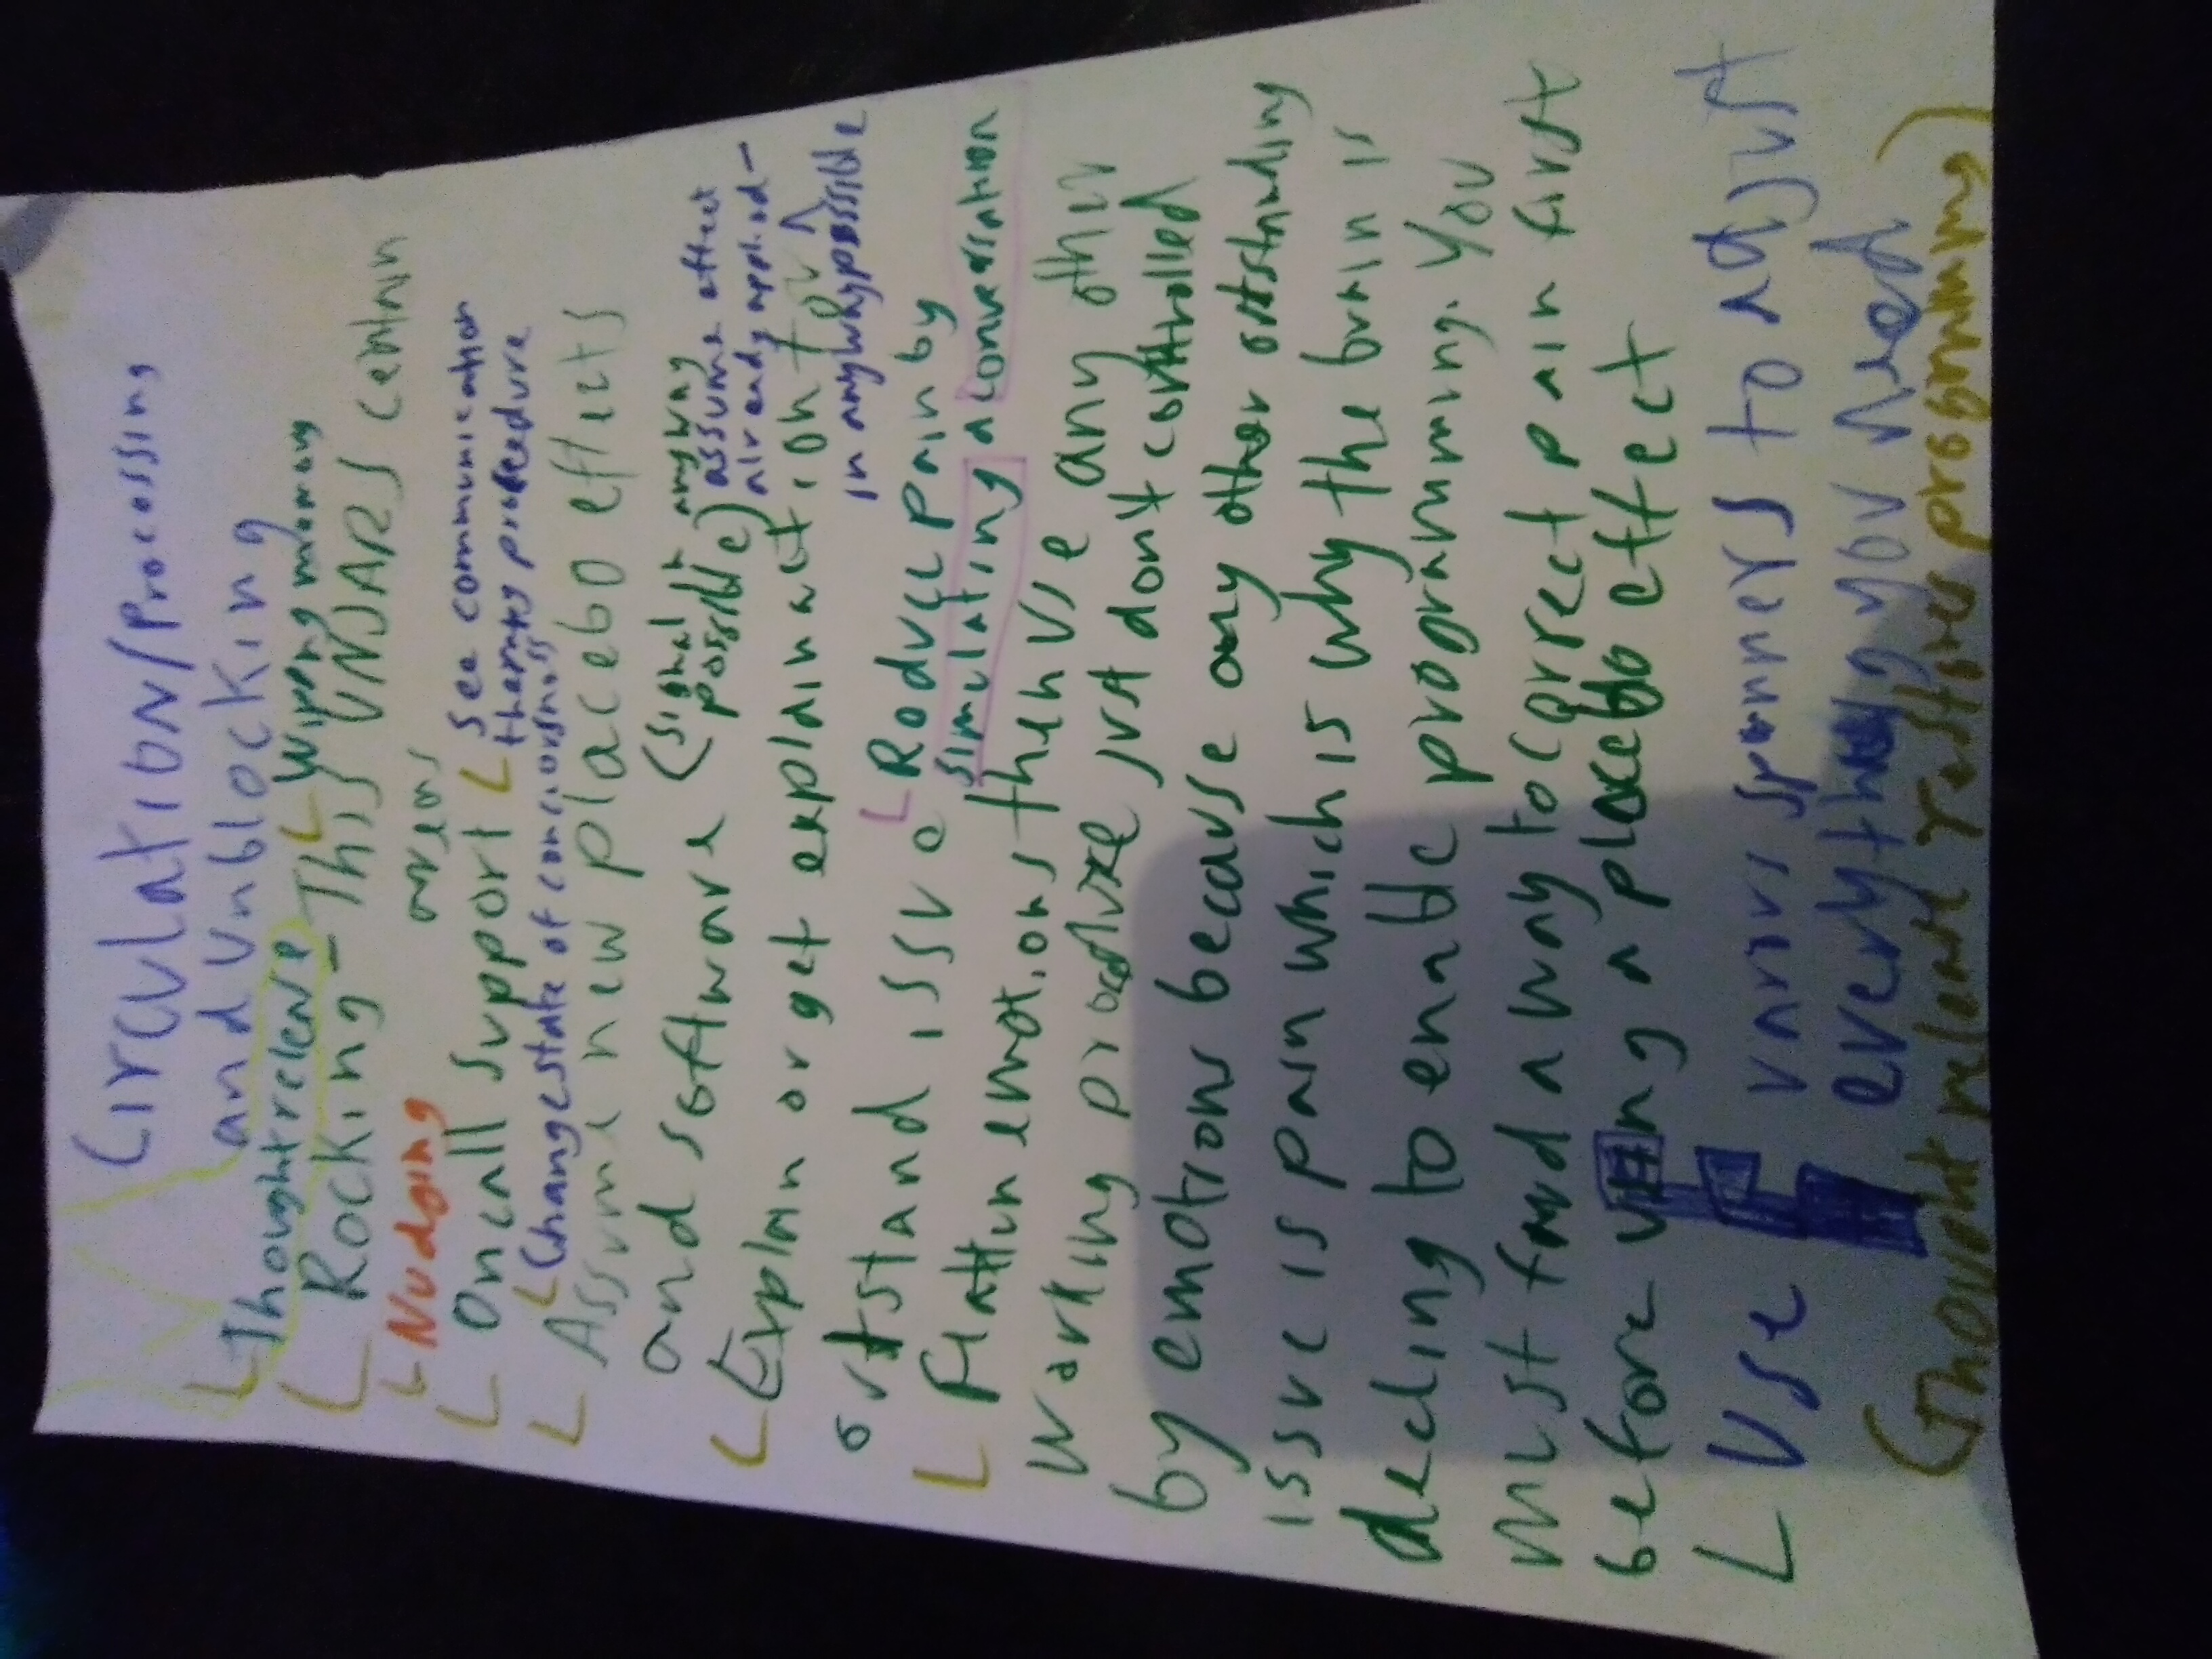 Circulation/Processing
and unblocking
Thought release
└ Wiping memory
Rocking - This UNJARS certain
areas
└ Nudging
└ On call support
└ See communication
therapy procedure
└ Change state of consciousness
└ Assume new placebo effects
and software (signal anyway
possible)
assume effect
already applied -
in any way possible
└ Explain or get explanation for
outstand issue
└ Reduce pain by
simulating a conversation
└ Flatten emotions then use any other
working procedure just dont controlled
by emotions because any other outstanding
issue is pain which is why the brain is
decling to enable programming. You
must find a way to correct pain first
before using a placebo effect
└ Use various spanners to adjust
everything you need
(Thought release restires programming)